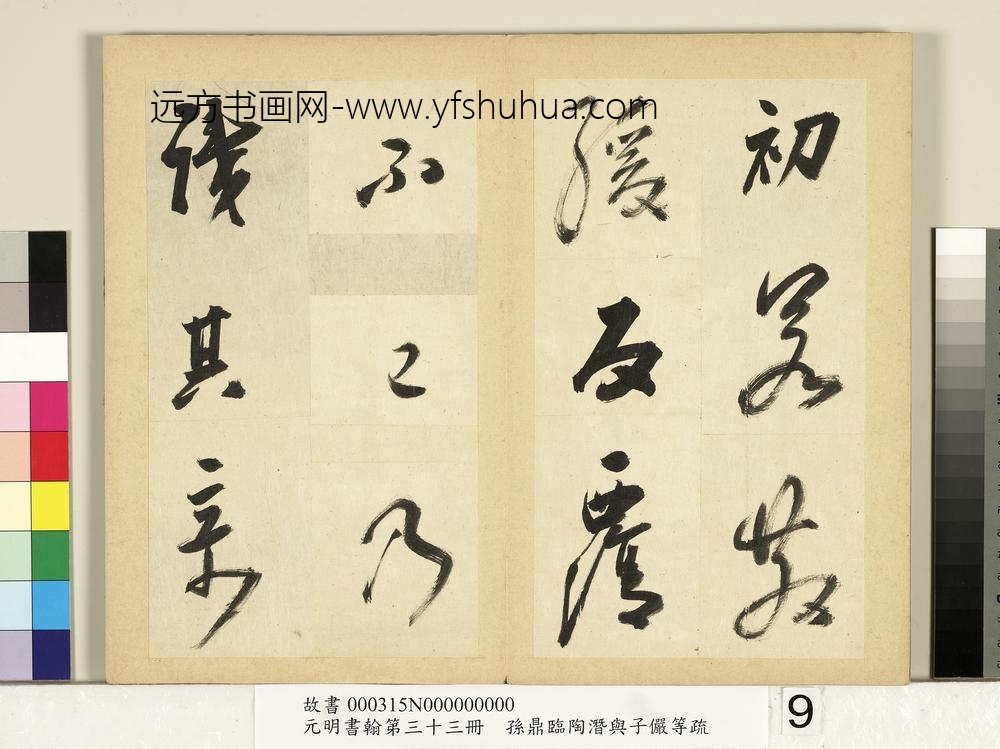 远方书画网-www.yfshuhua.com
初若散
緩反覆
不已乃
識其奇
故書 000315N000000000
元明書翰第三十三冊 孫鼎臨陶潛與子儼等疏
9